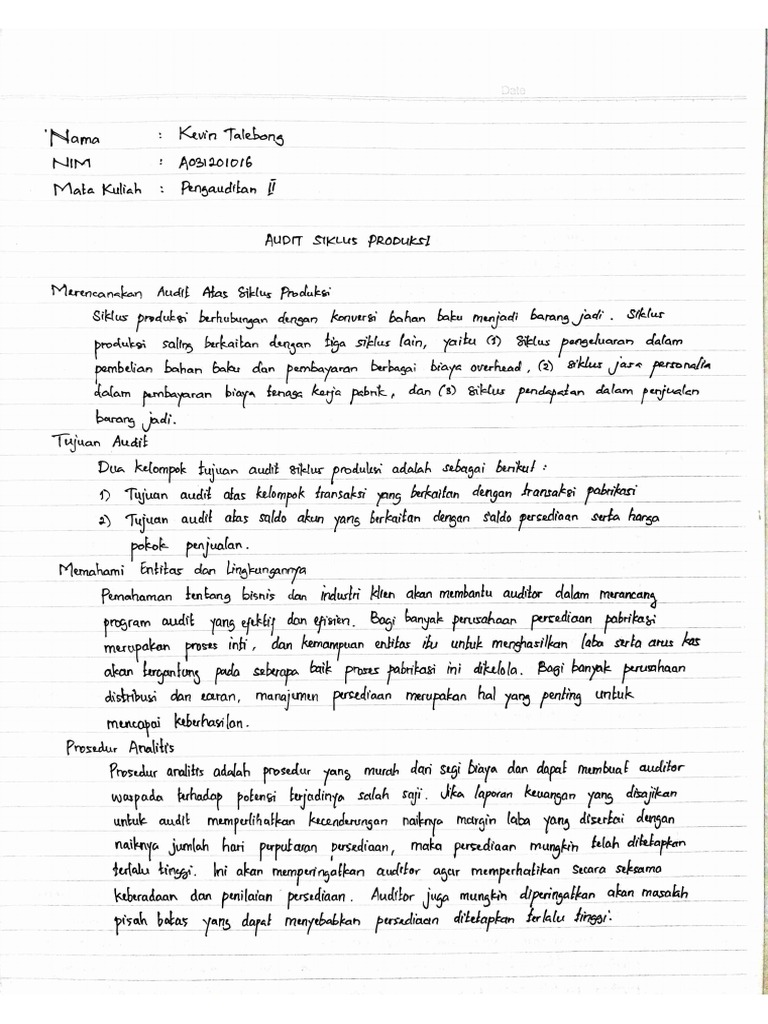 Date
Nama : Kevin Talebong
NIM : A031201016
Mata Kuliah : Pengauditan II
AUDIT SIKLUS PRODUKSI
Merencanakan Audit Atas Siklus Produksi
Siklus produksi berhubungan dengan konversi bahan baku menjadi barang jadi. Siklus
produksi saling berkaitan dengan tiga siklus lain, yaitu (1) siklus pengeluaran dalam
pembelian bahan baku dan pembayaran berbagai biaya overhead, (2) siklus jasa personalia
dalam pembayaran biaya tenaga kerja pabrik, dan (3) siklus pendapatan dalam penjualan
barang jadi.
Tujuan Audit
Dua kelompok tujuan audit siklus produksi adalah sebagai berikut :
1) Tujuan audit atas kelompok transaksi yang berkaitan dengan transaksi pabrikasi
2) Tujuan audit atas saldo akun yang berkaitan dengan saldo persediaan serta harga
pokok penjualan.
Memahami Entitas dan Lingkungannya
Pemahaman tentang bisnis dan industri klien akan membantu auditor dalam merancang
program audit yang efektif dan efisien. Bagi banyak perusahaan persediaan pabrikasi
merupakan proses inti, dan kemampuan entitas itu untuk menghasilkan laba serta arus kas
akan tergantung pada seberapa baik proses pabrikasi ini dikelola. Bagi banyak perusahaan
distribusi dan eceran, manajumen persediaan merupakan hal yang penting untuk
mencapai keberhasilan.
Prosedur Analitis
Prosedur analitis adalah prosedur yang murah dari segi biaya dan dapat membuat auditor
waspada terhadap potensi terjadinya salah saji. Jika laporan keuangan yang disajikan
untuk audit memperlihatkan kecenderungan naiknya margin laba yang disertai dengan
naiknya jumlah hari purputaran persediaan, maka persediaan mungkin telah ditetapkan
terlalu tinggi. Ini akan memperingatkan auditor agar memperhatikan secara seksama
keberadaan dan penilaian persediaan. Auditor juga mungkin diperingatkan akan masalah
pisah batas yang dapat menyebabkan persediaan ditetapkan terlalu tinggi.